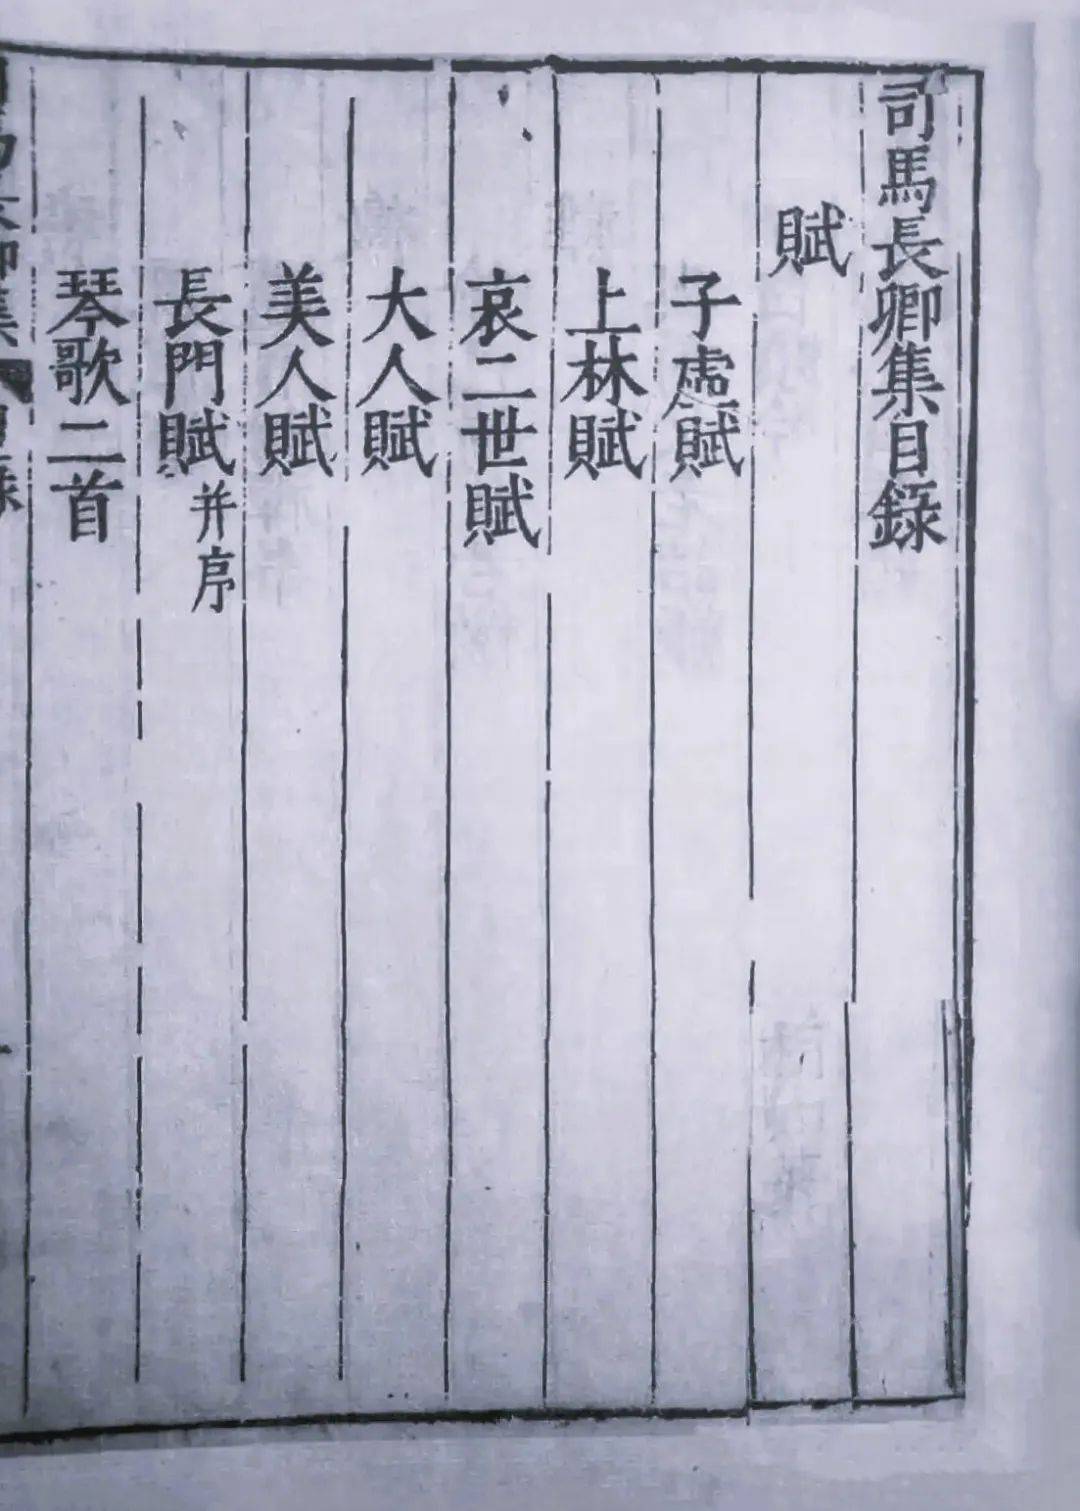 司馬長卿集目錄
賦
子虛賦
上林賦
哀二世賦
大人賦
美人賦
長門賦并序
琴歌二首